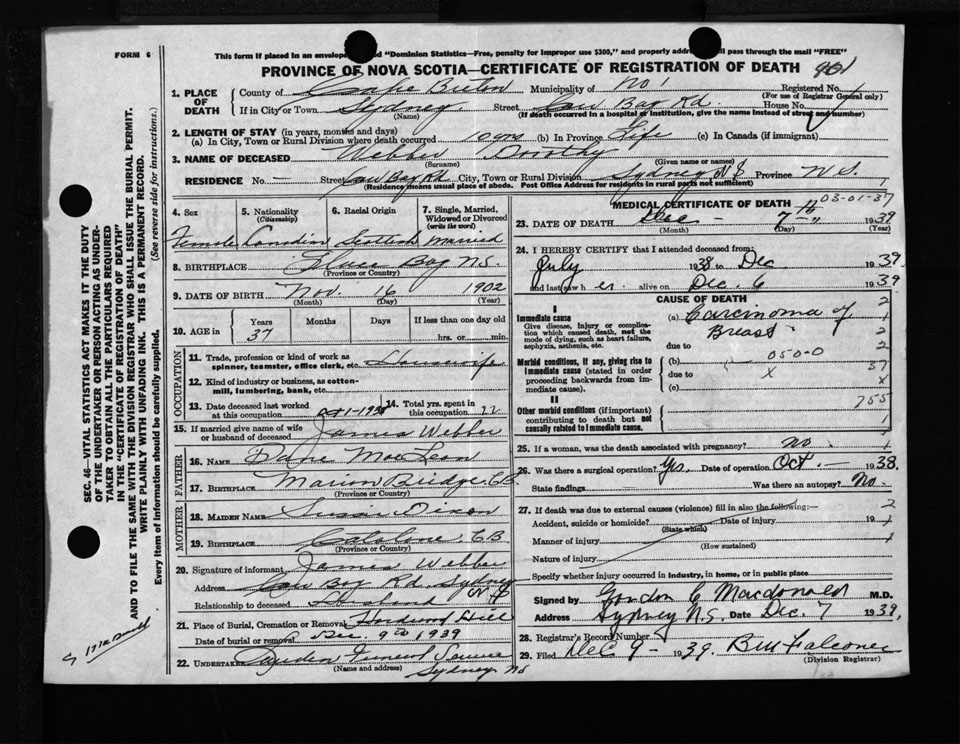 FORM 6
This form if placed in an envelope "Dominion Statistics—Free, penalty for improper use $300," and properly addr pass through the mail "FREE"
PROVINCE OF NOVA SCOTIA—CERTIFICATE OF REGISTRATION OF DEATH 901
1. PLACE OF DEATH County of Cape Breton Municipality of No 1 Registered No.
(For use of Registrar General only)
If in City or Town Sydney Street Cow Bay Rd. House No.
(Name) (If death occurred in a hospital or institution, give the name instead of street and number)
2. LENGTH OF STAY (in years, months and days)
(a) In City, Town or Rural Division where death occurred 10 yrs (b) In Province Life (c) In Canada (if immigrant)
3. NAME OF DECEASED Webber Dorothy
(Surname) (Given name or names)
RESIDENCE No — Street Cow Bay Rd City, Town or Rural Division Sydney N S Province N. S.
(Residence means usual place of abode. Post Office Address for residents in rural parts not sufficient)
4. Sex 5. Nationality (Citizenship) 6. Racial Origin 7. Single, Married, Widowed or Divorced (write the word)
Female Canadian Scottish Married
8. BIRTHPLACE Glace Bay N.S.
(Province or Country)
9. DATE OF BIRTH Nov. 16 1902
(Month) (Day) (Year)
10. AGE in Years Months Days If less than one day old
37 hrs. or min.
OCCUPATION
11. Trade, profession or kind of work as spinner, teamster, office clerk, etc. Housewife
12. Kind of industry or business, as cotton-mill, lumbering, bank, etc.
13. Date deceased last worked at this occupation Oct 1-1938 14. Total yrs. spent in this occupation 22
15. If married give name of wife or husband of deceased James Webber
FATHER
16. Name MacLean
17. Birthplace Marion Bridge, C.B.
(Province or Country)
MOTHER
18. Maiden Name Susan Dixon
19. Birthplace Catalone, C.B
(Province or Country)
20. Signature of informant James Webber
Address Cow Bay Rd, Sydney N S
Relationship to deceased Husband
21. Place of Burial, Cremation or Removal Hardwood Hill
Date of burial or removal Dec. 9th 1939
22. Undertaker Funeral Service
(Name and address) Sydney NS
MEDICAL CERTIFICATE OF DEATH 03-01-37
23. DATE OF DEATH Dec — 7th 1939
(Month) (Day) (Year)
24. I HEREBY CERTIFY that I attended deceased from:
July 1938 to Dec 1939.
and last saw h er. alive on Dec. 6 1939
CAUSE OF DEATH
I
Immediate cause (a) Carcinoma of Breast
Give disease, injury or complication which caused death, not the mode of dying, such as heart failure, asphyxia, asthenia, etc.
due to
Morbid conditions, if any, giving rise to immediate cause (stated in order proceeding backwards from immediate cause).
(b) 050-0 37
due to X X
(c)
II 755
Other morbid conditions (if important) contributing to death but not causally related to immediate cause.
25. If a woman, was the death associated with pregnancy? no. 1
26. Was there a surgical operation? Yes. Date of operation Oct. — 1938.
State findings Was there an autopsy? No.
27. If death was due to external causes (violence) fill in also the following:— 2
Accident, suicide or homicide? Date of injury 19
(State which)
Manner of injury
(How sustained)
Nature of injury
Specify whether injury occurred in industry, in home, or in public place
Signed by Gordon C Macdonald M.D.
Address Sydney N.S. Date Dec. 7 1939.
28. Registrar's Record Number
29. Filed Dec 9 - 1939. B M Falconer
(Division Registrar)
SEC. 46—VITAL STATISTICS ACT MAKES IT THE DUTY
OF THE UNDERTAKER OR PERSON ACTING AS UNDER-
TAKER TO OBTAIN ALL THE PARTICULARS REQUIRED
IN THE "CERTIFICATE OF REGISTRATION OF DEATH"
AND TO FILE THE SAME WITH THE DIVISION REGISTRAR WHO SHALL ISSUE THE BURIAL PERMIT.
WRITE PLAINLY WITH UNFADING INK. THIS IS A PERMANENT RECORD.
Every item of information should be carefully supplied. (See reverse side for instructions.)